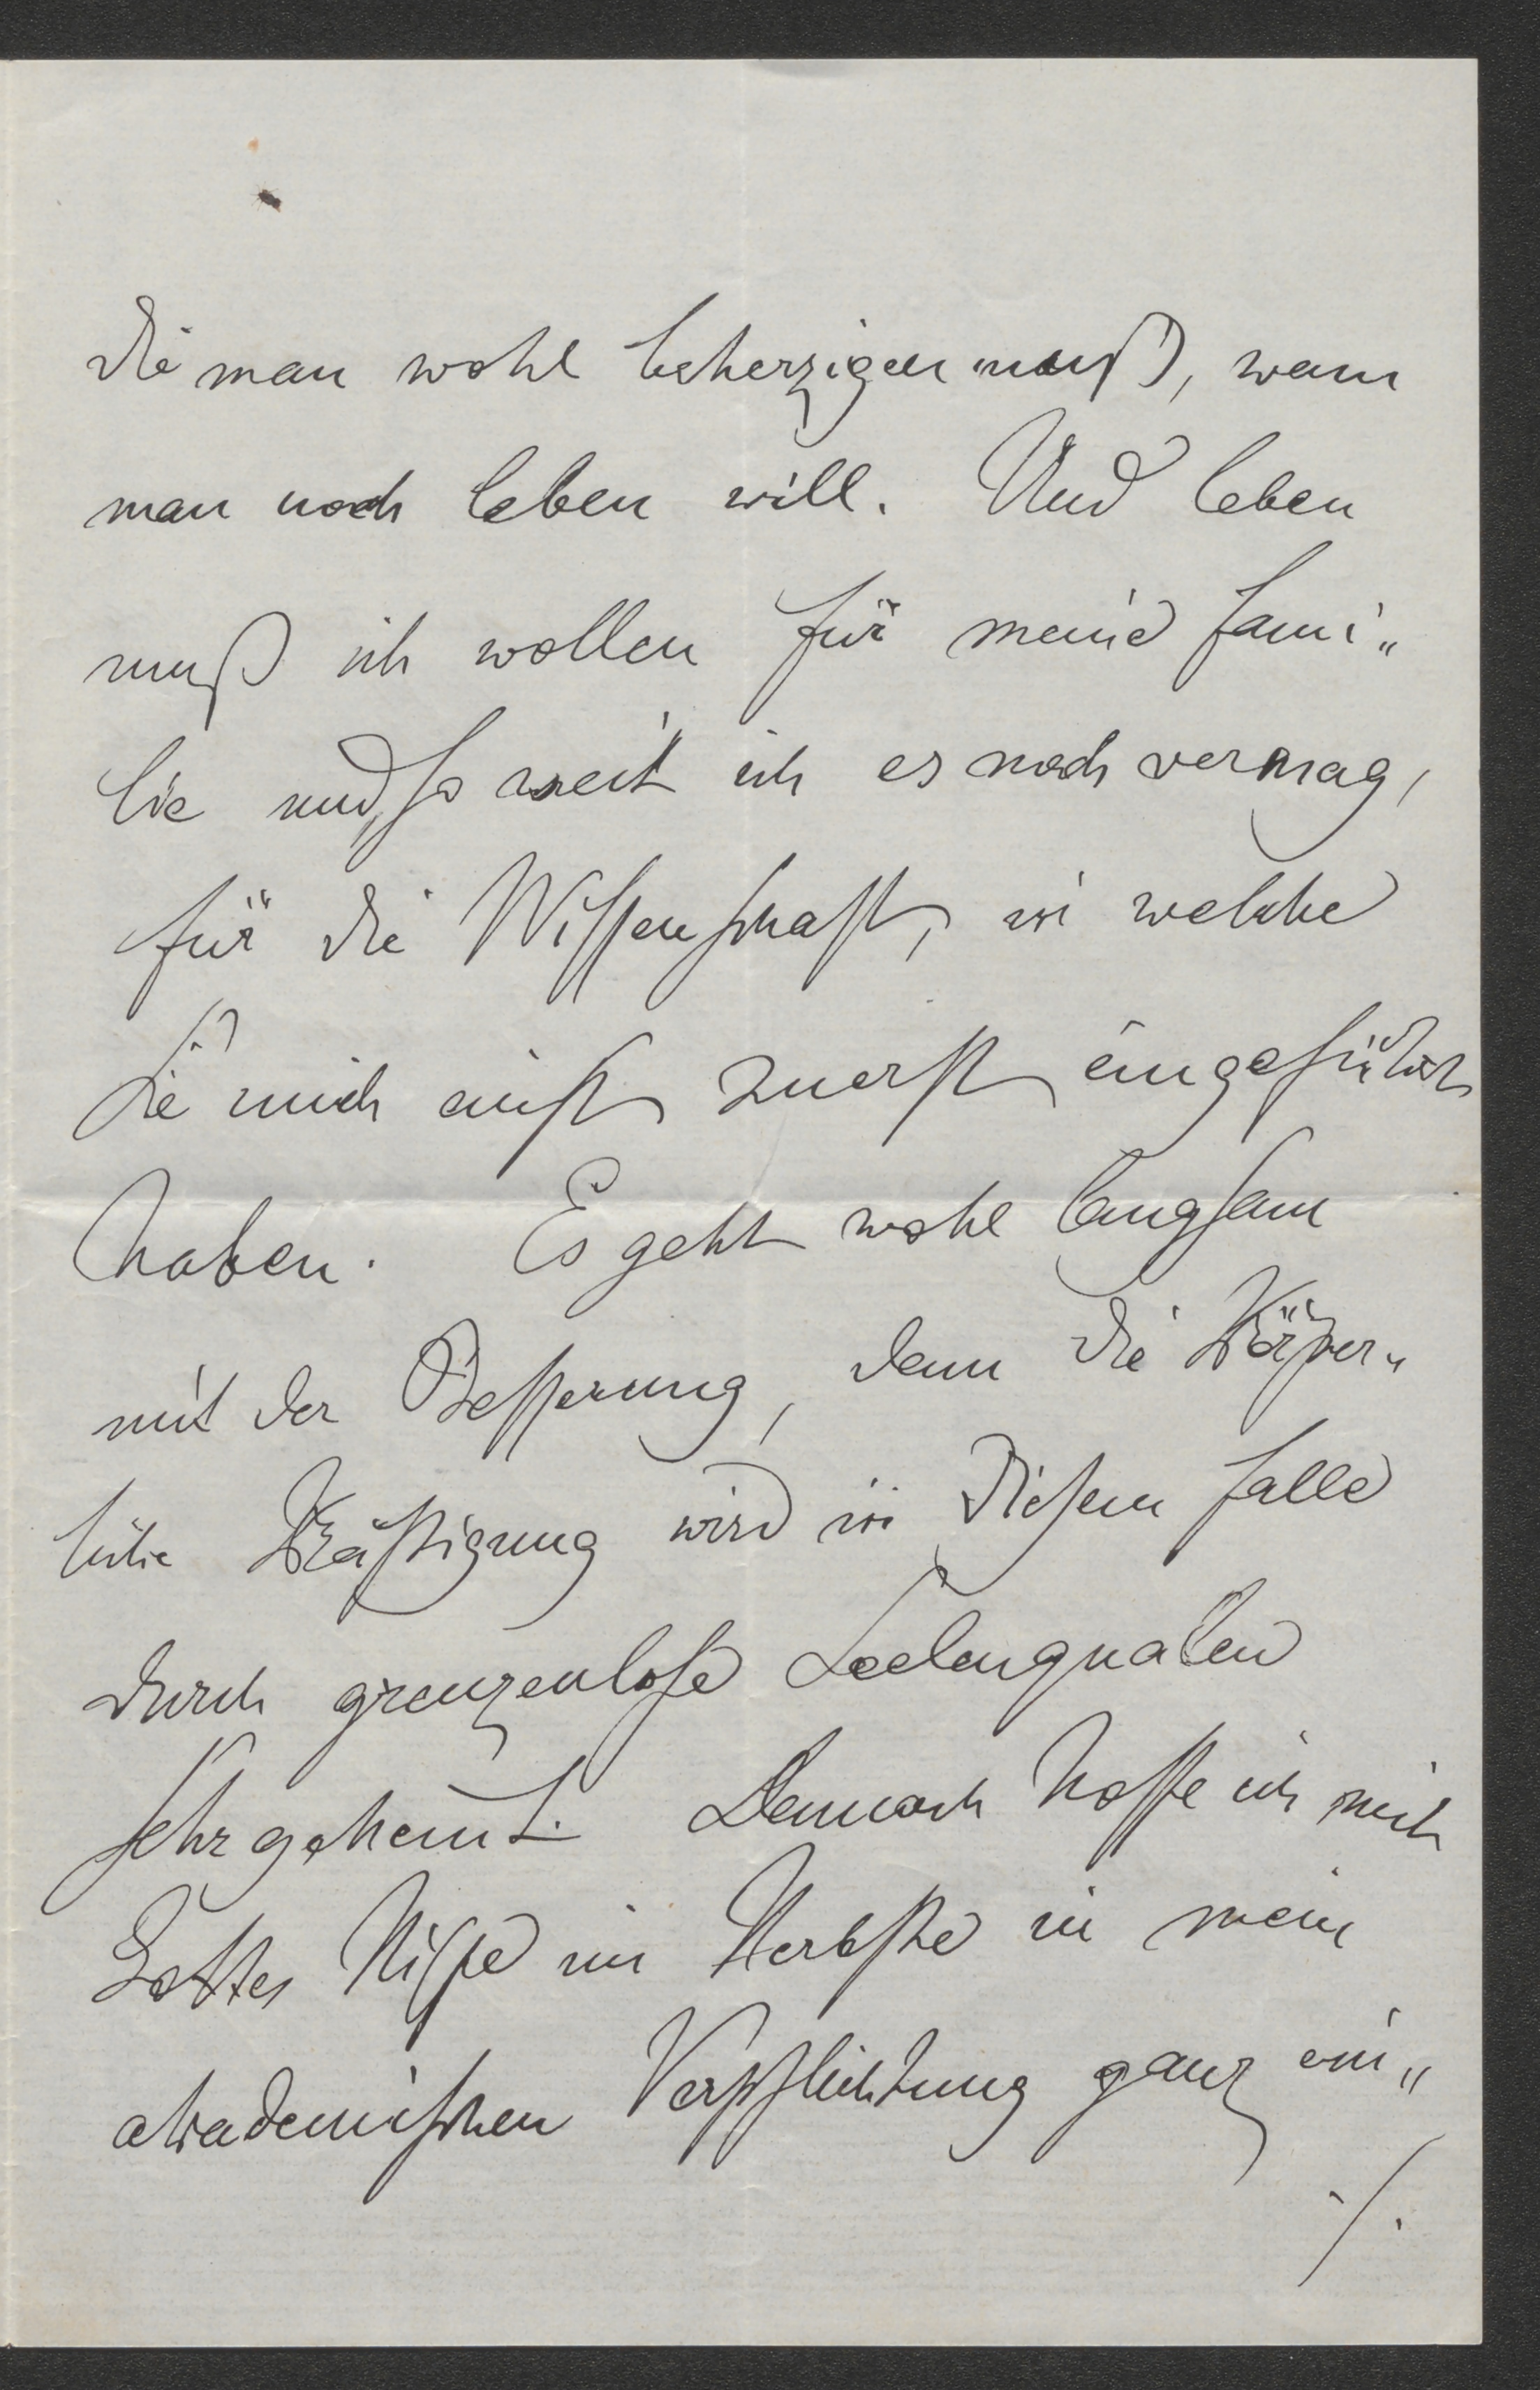 die man wohl beherzigen muß, wenn
man noch leben will. Und leben
muß ich wollen für meine Fami„
lie und, so weit ich es noch vermag,
für die Wissenschaft, in welche
Sie mich einst zuerst eingeführt
haben. Es geht wohl langsam
mit der Besserung, denn die Körper„
liche Kräftigung wird in diesem Falle
durch grenzenlose Seelenqualen
sehr gehemt. Dennoch hoffe ich mich
Gottes Hilfe im Herbste in mein
akademischen Verpflichtung ganz ein„
./.